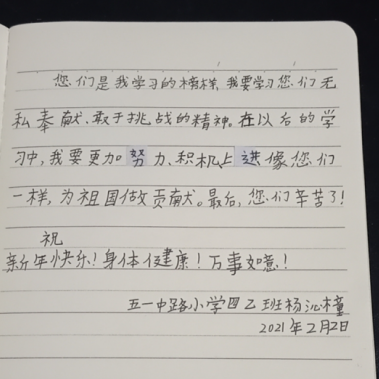 您们是我学习的榜样,我要学习您们无
私奉献、敢于挑战的精神。在以后的学
习中,我要更加努力、积机上进像您们
一样,为祖国做贡献。最后,您们辛苦了!
祝
新年快乐!身体健康!万事如意!
五一中路小学四乙班杨沁橦
2021年2月2日